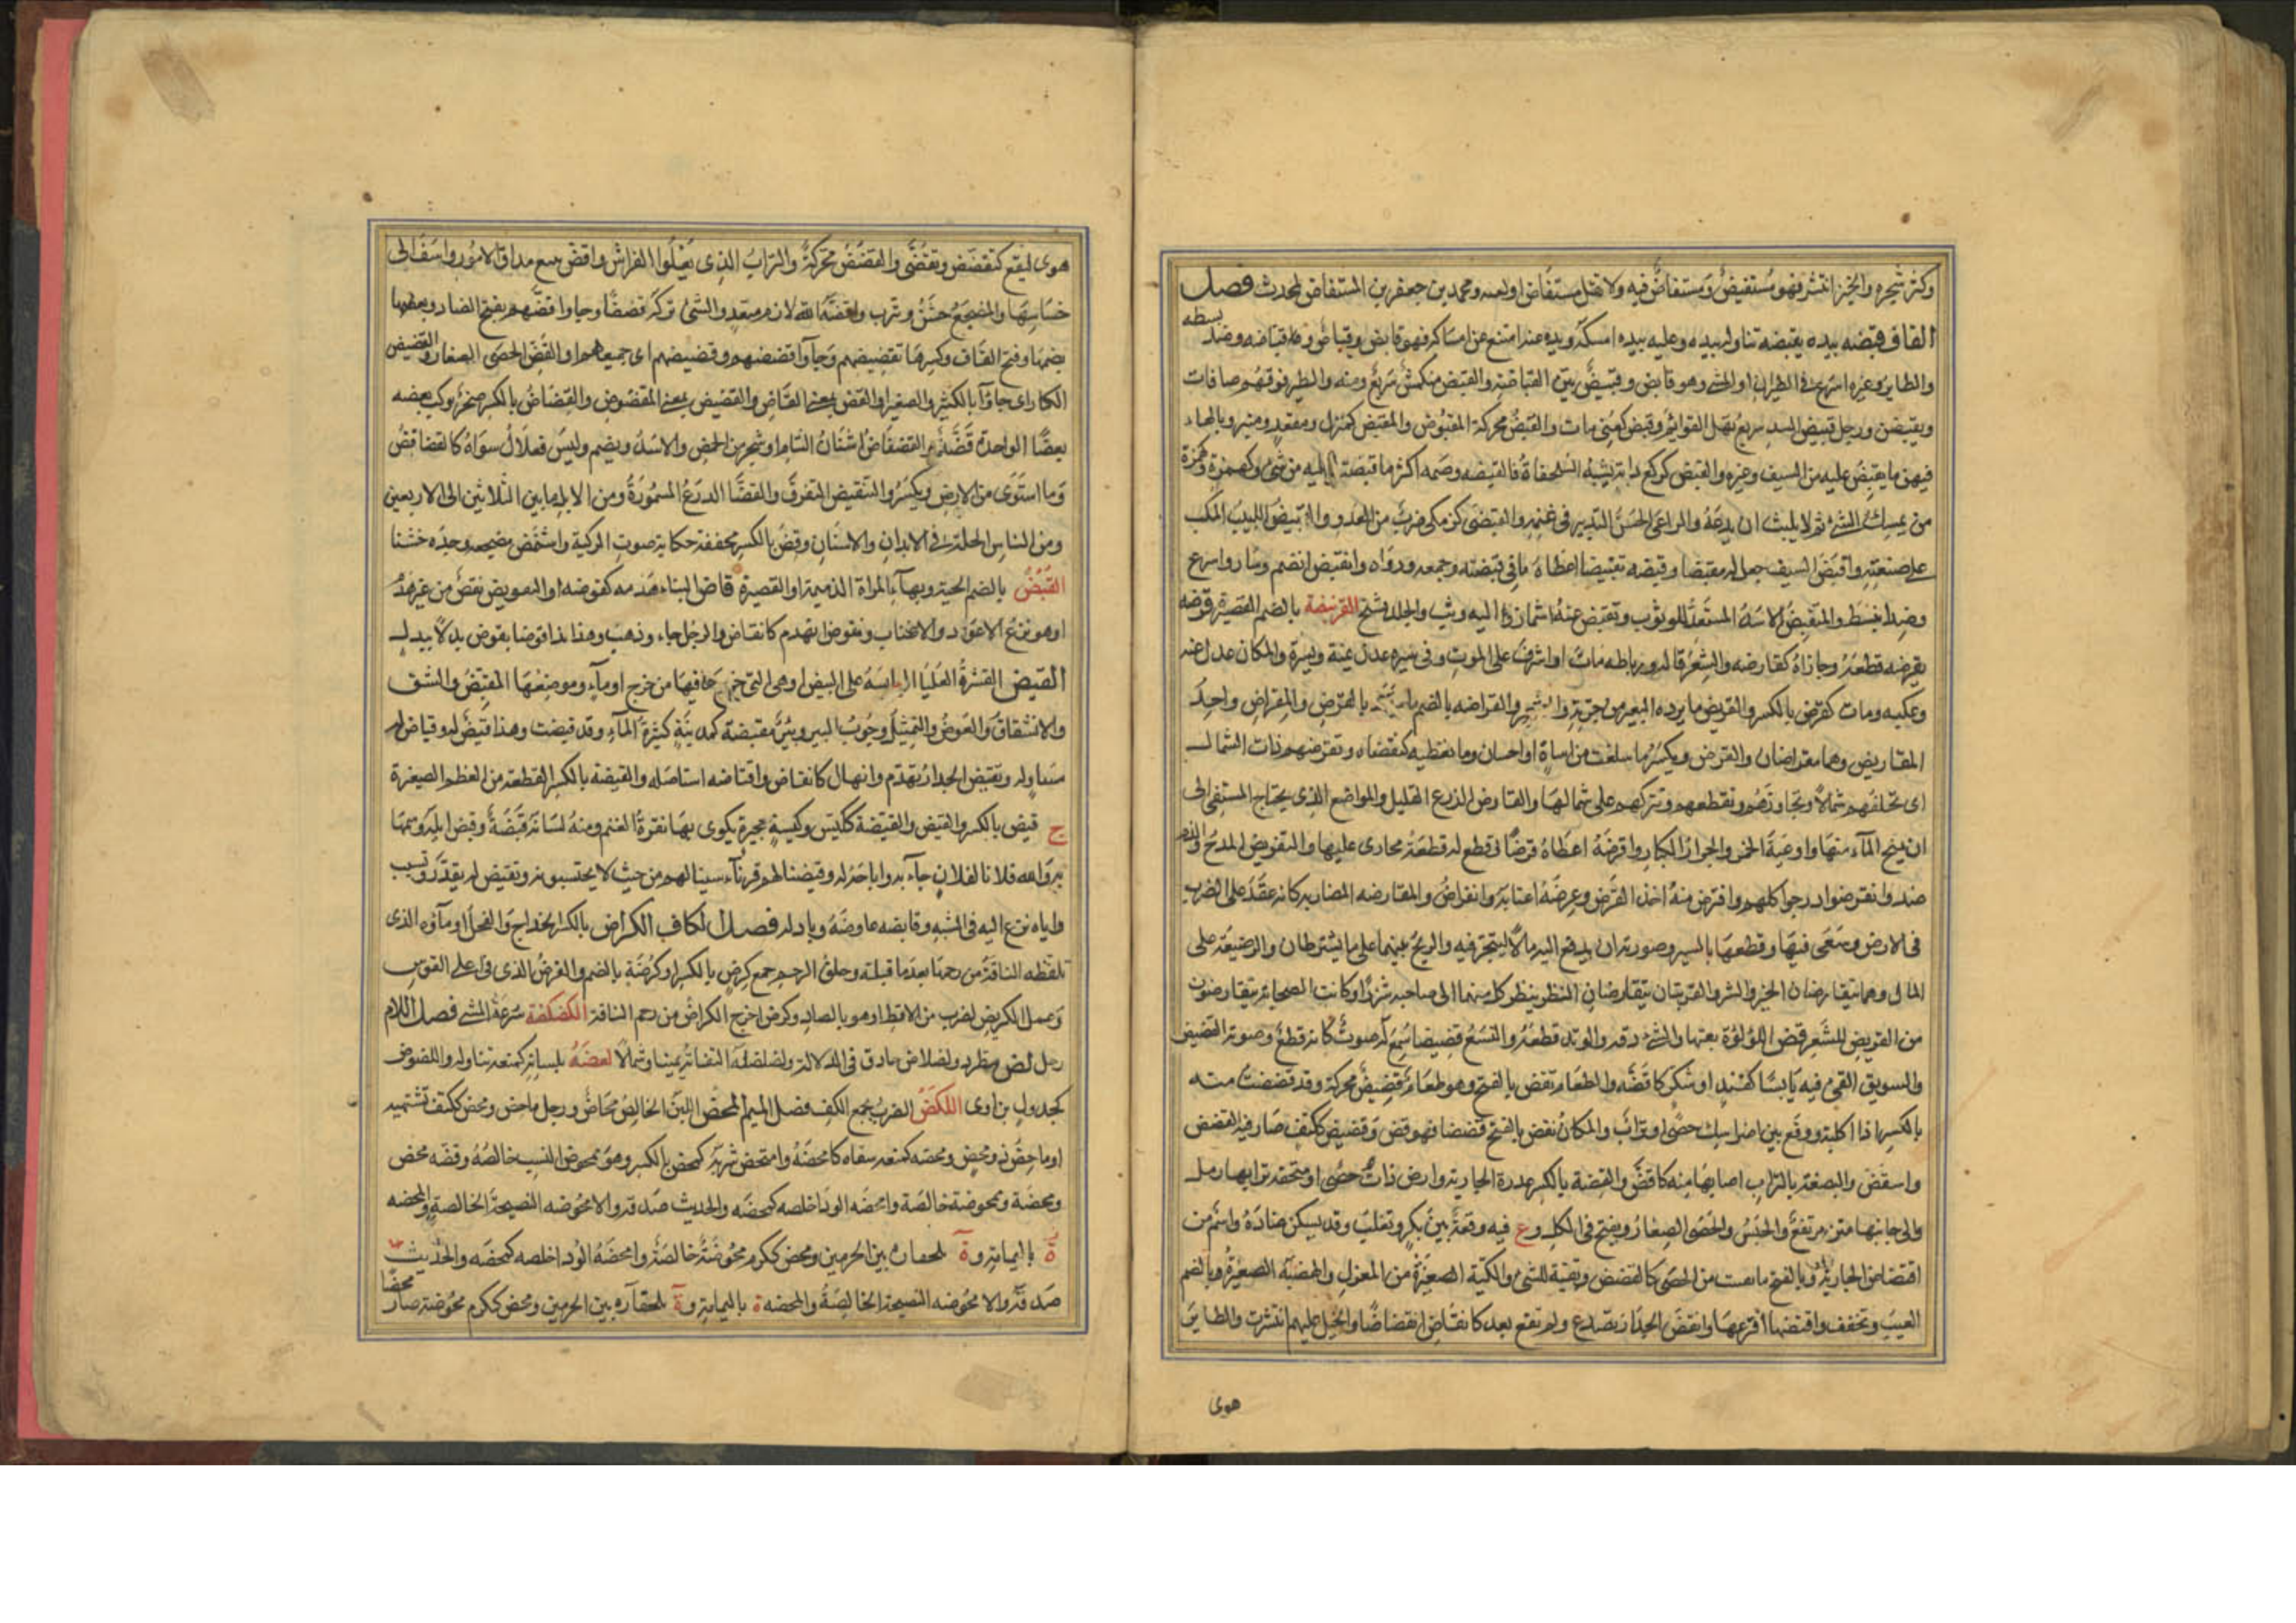 وكثر شجره والخبز انتشر فهو مستفيض ومستفاض فيه ولا تقل مستفاض او لغيه ومحمد بن جعفر بن المستفاض المحدث فصل
القاف قبضه بيده يقبضه تناوله بيده وعليه بيده امسكه ويده عنه امتنع عن امساكه فهو قابض وقباض وقباضه وضد بسطه
والطاير وغيره اسرع في الطيران او المشي وهو قابض وقبيض بين القباضة والقبض منكمش سريع ومنه والطير فوقهم صافات
ويقبضن ورجل قبيض الشد سريع نقل القوائم وقبض كعني مات والقبض محركة المقبوض والمقبض كمنزل ومقعد ومنبر وبالهاء
فيهن ما يقبض عليه من السيف وغيره والقبض كركع دابة تشبه السلحفاة والقبضه وضمه اكثر ما قبضت عليه من شيء وكهمزة
من يمسك الشيء ثم لا يلبث ان يدعه والراعي الحسن التدبير في غنمه والقبضى كزمكى ضرب من العدو والقبيض اللبيب المكب
على صنعته واقبض السيف جعل له مقبضا وقبضه تقبيضا اعطاه ما في قبضته وجمعه وزواه وانقبض انضم وسار واسرع
وضد انبسط والمتقبض الاسد المستعد للوثوب وتقبض عنه اشماز واليه وثب والجلد تشنج القرنبضة بالضم القصيرة قرضه
يقرضه قطعه وجازاه كقارضه والشعر قاله ورباطه مات او اشرف على الموت وفي سيره عدل يمنة ويسرة والمكان عدل عنه
وعكبه ومات كقرض بالكسر والقريض ما يرده البعير من جرته والشعر والقراضه بالضم ما سقط بالقرض والمقراض واحد
المقاريض وهما مقراضان والقرض ويكسر ما سلفت من اساءة او احسان وما تعطيه لتقضاه وتقرضهم ذات الشمال
اى تخلفهم شمالا وتجاوزهم وتقطعهم وتتركهم على شمالها والقارض الزرع القليل والمواضع الذي يحتاج المستقى الى
ان يميح الماء منها واوعية الخمر والجرار الكبار واقرضه اعطاه قرضا وقطع له قطعة يجازى عليها والتقريض المدح والذم
ضد وانقرضوا درجوا كلهم واقترض منه اخذ القرض وعرضه اغتابه وانقراض والمقارضه المضاربه كانه عقد على الضرب
في الارض وسعى فيها وقطعها بالسير وصورته ان يدفع اليه مالا ليتجر فيه والربح بينهما على ما يشترطان والوضيعة على
المال وهما يتقارضان الخير والشر والقرنان يتقارضان النظر ينظر كل منهما الى صاحبه شزرا وكانت الصحابة يتقارضون
من القريض للشعر قض اللؤلؤة ثقبها والشيء دقه والوتد قطعه والنسع قضيضا سمع له صوت كانه قطع وصوته القضيض
والسويق القى فيه يابسا كقند او سكر كاقضه والطعام يقض بالفتح وهو طعام قضيض محركة وقد قضضت منه
بالكسر اذا اكلته ووقع بين اضراسك حصى او تراب والمكان يقض بالفتح قضضا فهو قض وقضيض ككتف صار فيه القضض
واستقض والبضعة بالتراب اصابها منه كاقض والقضة بالكسر عذرة الجارية وارض ذات حصى او منخفضة ترابها رمل
والى جانبها متن مرتفع والجنس والحصى الصغار ويفتح في الكل وع فيه وقعة بين بكر وتغلب وقد يسكن ضاده واسم من
اقتضاض الجارية وبالفتح ما تفتت من الحصى كالقضض وبقية الشيء والكبة الصغيرة من المغزل والهضبة الصغيرة وبالضم
العيب وتخفف واقتضها افترعها وانقض الجدار تصدع ولم يقع بعد كانقاض انقضاضا والخيل عليهم انتشرت والطاير
هوى
هوى ليقع كتقضض وتقضى والقضض محركة والتراب الذي يعلو الفراش واقض تتبع مداق الامور واسف الى
خساسها والمضجع خشن وترب واقضه الله لازم متعد والشيء تركه قضضا وجاوا قضهم بفتح الضاد وبعضها
بضمها وفتح القاف وكسرها بقضيضهم وجاوا قضضهم وقضيضهم اى جميعهم او القض الحصى الصغار والقضيض
الكبار اى جاوا بالكبير والصغير او القض بمعنى القاض والقضيض بمعنى المقضوض والقضاض بالكسر صخر يركب بعضه
بعضا الواحدة قضة والقضقاض اشنان الشام او شجر من الحمض والاسد ويضم وليس فعلال سواه كالقضاقض
وما استوى من الارض ويكسر والتقضض التفرق والقضاء الدرع المسمورة ومن الابل ما بين الثلاثين الى الاربعين
ومن الناس الجلة في الابدان والاسنان وقض بالكسر مخففة حكاية صوت الركبة واستقض مضجعه وجده خشنا
القنبض بالضم الحية وبهاء المراة الذميمة او القصيرة قاض البناء هدمه كقوضه او التقويض نقض من غير هدم
او هو نزع الاعواد والاطناب وتقوض انهدم كانقاض والرجل جاء وذهب وهذا بذا قوضا بقوض بدلا ببدل
القيض القشرة العليا اليابسة على البيض او هي التي خرج ما فيها من فرخ او ماء وموضعها المقيض والشق
والانشقاق والعوض والتمثيل وجوب البير وبئر مقيضة كمدينة كثيرة الماء وقد قيضت وهذا قيض له وقياض له
مساو له وتقيض الجدار تهدم وانهال كانقاض واقتاضه استاصله والقيضة بالكسر القطعة من العظم الصغيرة
ج قيض بالكسر والقيض والقيضة ككيس وكيسة حجيرة يكوى بها نقرة الغنم ومنه لسانه قيضة وقيض ابله وسمها
به والله فلانا لفلان جاء به واتاحه له وقيضنا لهم قرناء سببنا لهم من حيث لا يحتسبونه وتقيض له تقدر وتسبب
واياه نزع اليه في الشبه وقايضه عاوضه وبادله فصل الكاف الكراض بالكسر الخداج والفحل او ماؤه الذي
تلفظه الناقة من رحمها بعد ما قبلته وحلق الرحم جمع كرض بالكسر او كرضة بالضم والفرض الذي في اعلى القوس
وعمل الكريض لضرب من الاقط او هو بالصاد وكرض اخرج الكراض من رحم الناقة الكضكضة سرعة المشي فصل اللام
رجل لض مطرد ولضلاض حاذق في الدلالة ولضلضته التفاته يمينا وشمالا لعضه بلسانه كمنعه تناوله واللعوض
كجدول بن اوى اللكض الضرب بجمع الكف فصل الميم المحض اللبن الخالص محاض ورجل ماحض ومحض ككتف تشتهيه
او ماحض ذو محض ومحضه كمنعه سقاه كامحضه وامتحض شربه كمحض بالكسر وهو ممحوض النسب خالصه وفضه محض
ومحضة وممحوضة خالصة وامحضه الود اخلصه كمحضه والحديث صدقه والامحوضه النصيحة الخالصة والمحضه
ة باليمامة وة لحقان بين الحرمين ومحض ككرم محوضة خالصة وامحضه الود اخلصه كمحضه والحديث
صدقه والامحوضه النصيحة الخالصة والمحضه ة باليمامة وة لحقاره بين الحرمين ومحض ككرم محوضة صار محضا